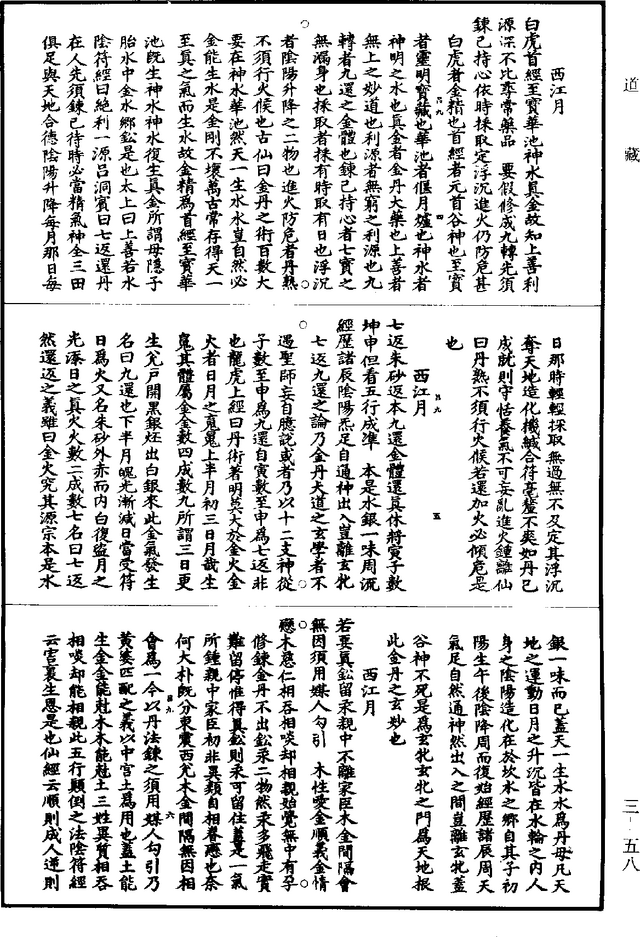 道藏
西江月
白虎首經至寶華池神水真金故知上善利
源深不比尋常藥品　要假修成九轉先須
鍊己持心依時採取定浮沉進火仍防危甚
白虎者金精也首經者元首谷神也至寶
者靈明寶藏也華池者偃月爐也神水者
神明之水也真金者金丹大藥也上善者
無上之妙道也利源者無窮之利源也九
轉者九還之金體也鍊己持心者七寶之
無漏身也採取者採有時取有日也浮沉
者陰陽升降之二物也進火防危者丹熟
不須行火候也古仙曰金丹之術百數大
要在神水華池然天一生水水豈自然必
金能生水是金剛不壞萬古常存得天一
至真之氣而生水故金精為首經至寶華
池既生神水神水復生真金所謂母隱子
胎水中金水鄉鉛是也太上曰上善若水
陰符經曰絕利一源呂洞賓曰七返還丹
在人先須鍊己待時必當精氣神全三田
俱足與天地合德陰陽升降每月那日每
日那時輕輕採取無過無不及定其浮沉
奪天地造化機緘合符毫釐不爽如丹已
成就則守恬養氣不可妄亂進火鍾離仙
曰丹熟不須行火候若還加火必傾危是
也
西江月
七返朱砂返本九還金體還真休將寅子數
坤申但看五行成準　本是水銀一味周流
經歷諸辰陰陽炁足自通神出入豈離玄牝
七返九還之論乃金丹大道之玄學者不
遇聖師妄自臆說或者乃以十二支神從
子數至申為九還自寅數至申為七返非
也龍虎上經曰丹術著明莫大於金火金
火者日月之魂魄上半月初三日月哉生
魂其體屬金金數四成數九所謂三日更
生兌戶開黑銀㽞出白銀來此金氣發生
名曰九還也下半月魄光漸減日當受符
日為火又名朱砂外赤而內白復盜月之
光添日之真火火數二成數七名曰七返
然還返之義雖曰金火究其源宗本是水
銀一味而已蓋天一生水水為丹母凡天
地之運動日月之升沉皆在水輪之內人
身之陰陽造化在於坎水之鄉自其子初
陽生午後陰降周而復始經歷諸辰周天
氣足自然通神然出入之間豈離玄牝蓋
谷神不死是為玄牝玄牝之門為天地根
此金丹之玄妙也
西江月
若要真鉛留汞親中不離家臣木金間隔會
無因須用媒人勾引　木性愛金順義金情
戀木慈仁相吞相啖却相親始覺無中有孕
修鍊金丹不出鉛汞二物然汞多飛走實
難留停惟得真鉛則汞可留住蓋是一氣
所鍾親中家臣初非異類自相眷戀也奈
何大朴既分東震西兌木金間隔無因相
會為一今以丹法鍊之須用媒人勾引乃
黃婆匹配之義以中宮土為用也蓋土能
生金金能尅木木能尅土三姓異質相吞
相啖却能相親此五行顛倒之法陰符經
云害裏生恩是也仙經云順則成人逆則
三-五八